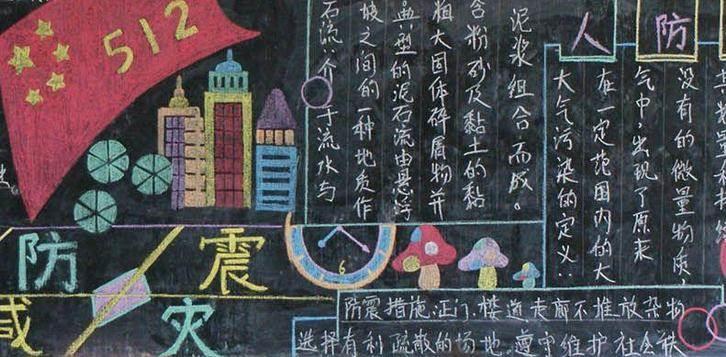 512
防 震
灾
石流介于流水与
坡之间的一种地质作
典型的泥石流由悬浮
粗大固体碎屑物并
含粉砂及黏土的黏
泥浆组合而成。
6
人防
大气污染的定义:
在一定范围内的大
气中,出现了原来
没有的微量物质,
防震措施:正门、楼道、走廊不堆放杂物
选择有利疏散的场地,遵守维护社会秩